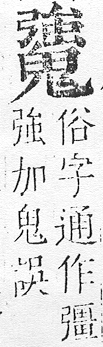 俗字通作彊
強加鬼誤